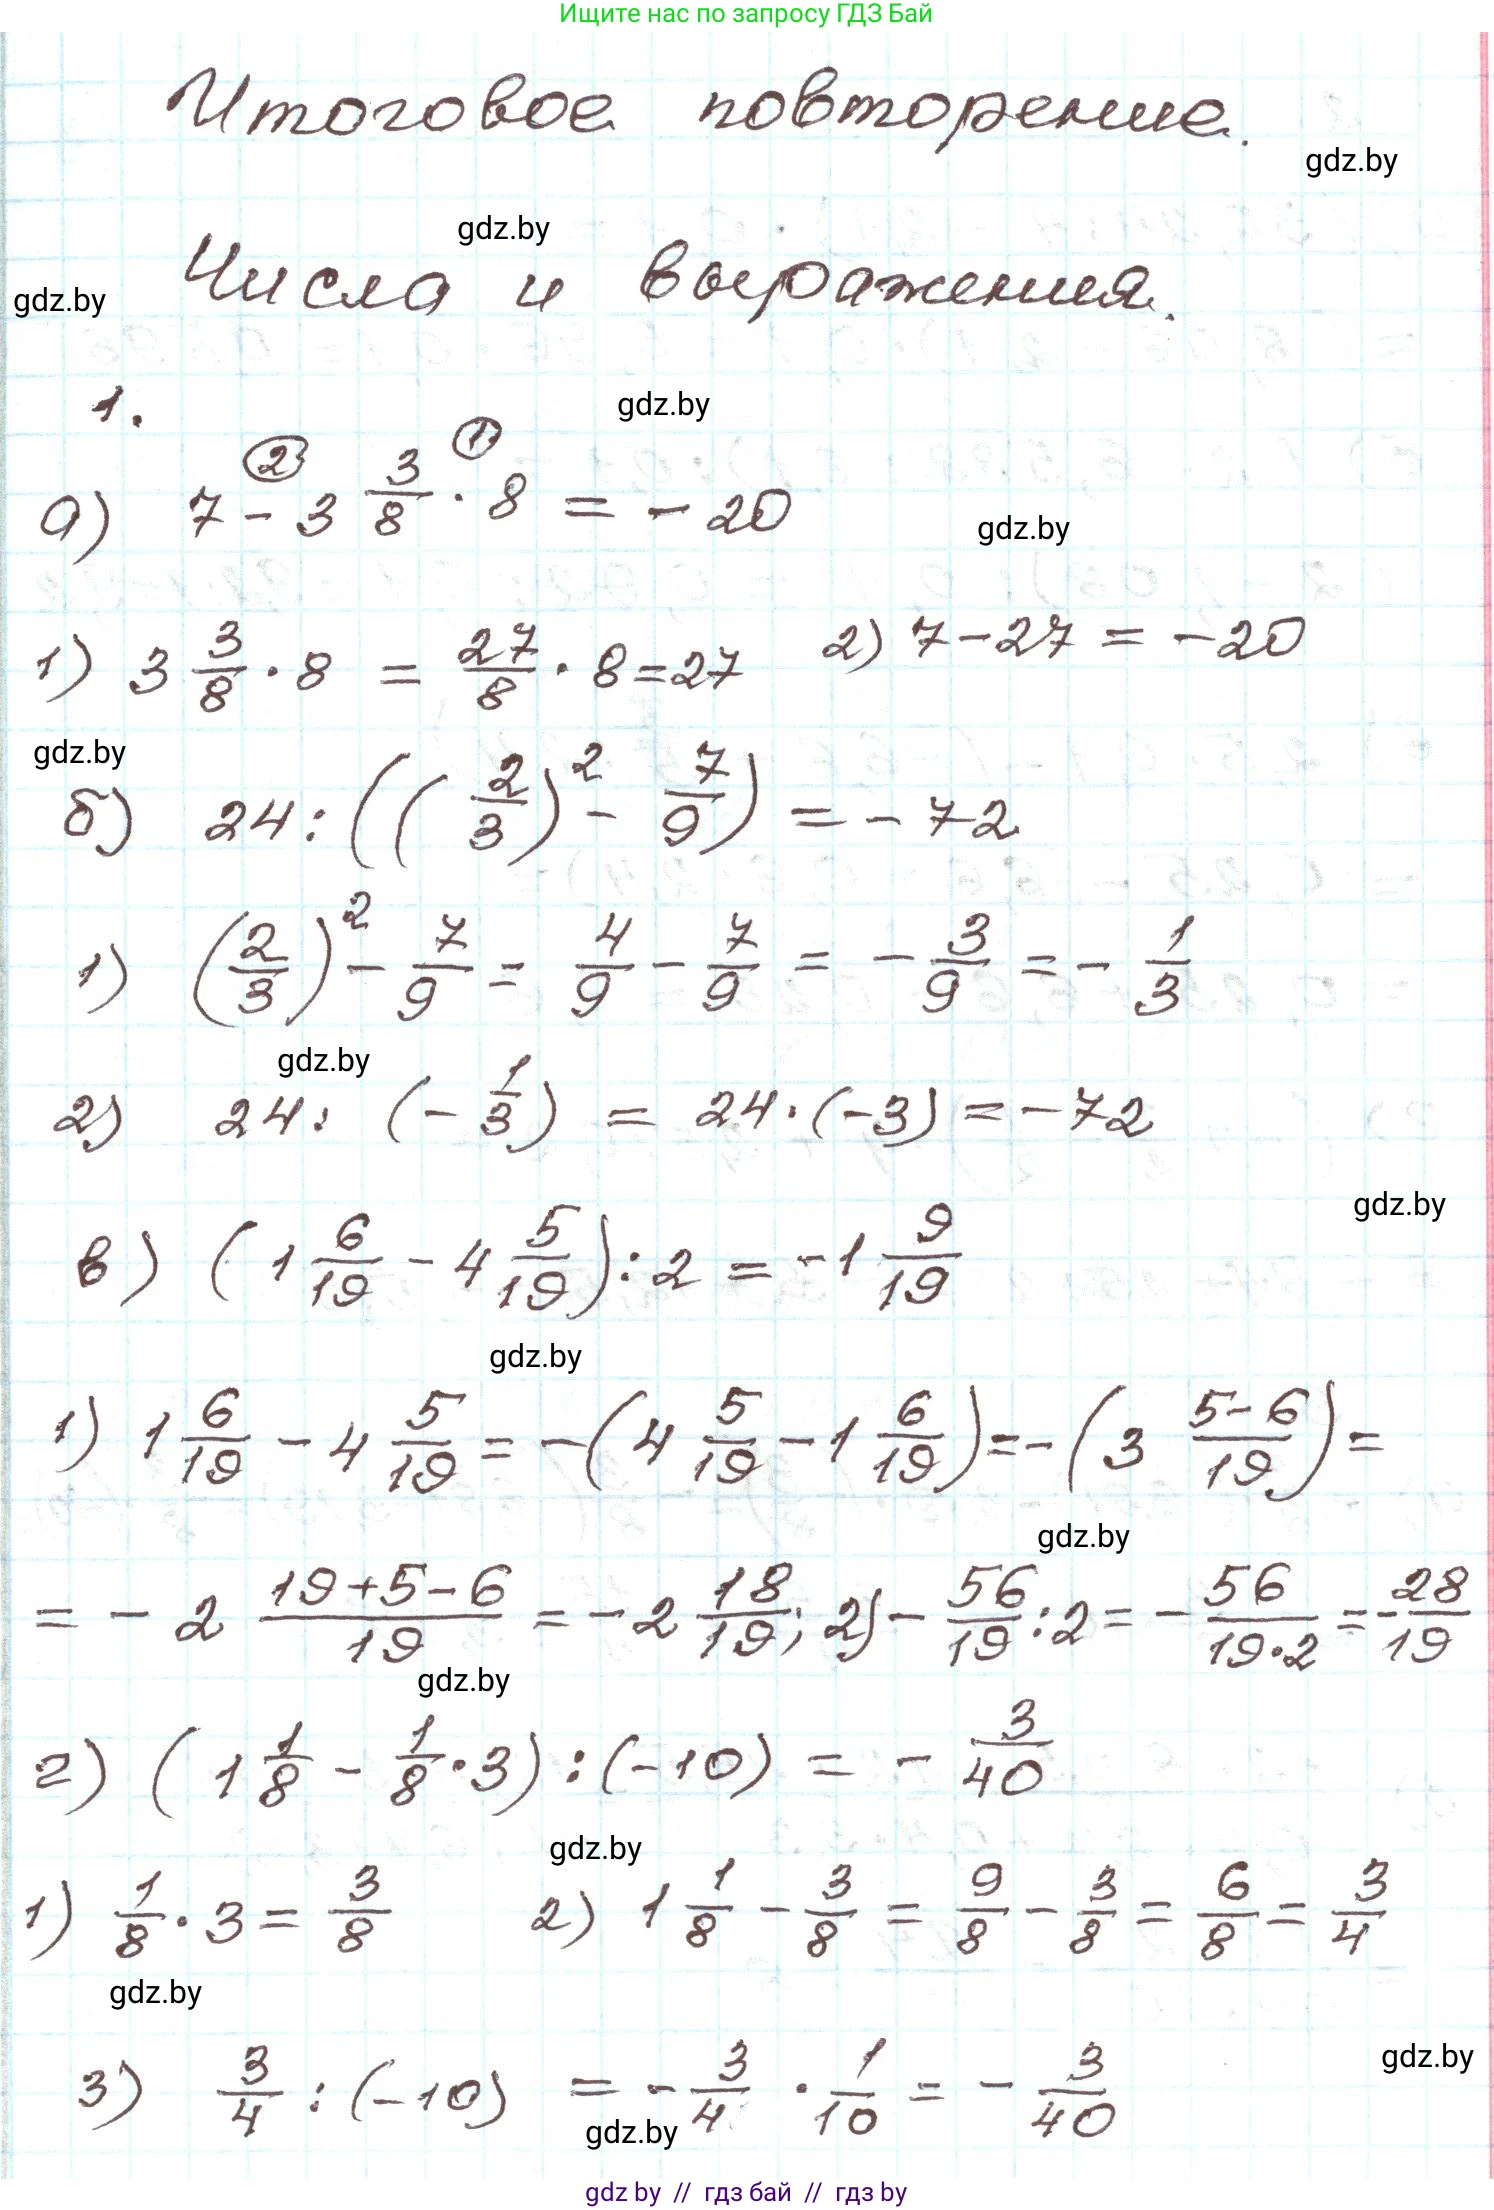 Ищите нас по запросу ГДЗ Бай
Итоговое повторение.
gdz.by
gdz.by
Числа и выражения.
gdz.by
1.
gdz.by
② ①
а) 7 - 3 3/8 · 8 = - 20
gdz.by
1) 3 3/8 · 8 = 27/8 · 8 = 27 2) 7 - 27 = - 20
gdz.by
б) 24 : ((2/3)² - 7/9) = - 72
1) (2/3)² - 7/9 = 4/9 - 7/9 = - 3/9 = - 1/3
gdz.by
2) 24 : (- 1/3) = 24 · (-3) = - 72
gdz.by
в) (1 6/19 - 4 5/19) : 2 = - 1 9/19
gdz.by
1) 1 6/19 - 4 5/19 = - (4 5/19 - 1 6/19) = - (3 5-6/19) =
gdz.by
= - 2 19+5-6/19 = - 2 18/19; 2) - 56/19 : 2 = - 56/19·2 = - 28/19
gdz.by
г) (1 1/8 - 1/8 · 3) : (-10) = - 3/40
gdz.by
1) 1/8 · 3 = 3/8 2) 1 1/8 - 3/8 = 9/8 - 3/8 = 6/8 = 3/4
gdz.by
gdz.by
3) 3/4 : (-10) = - 3/4 · 1/10 = - 3/40
gdz.by
gdz.by // гдз бай // гдз by